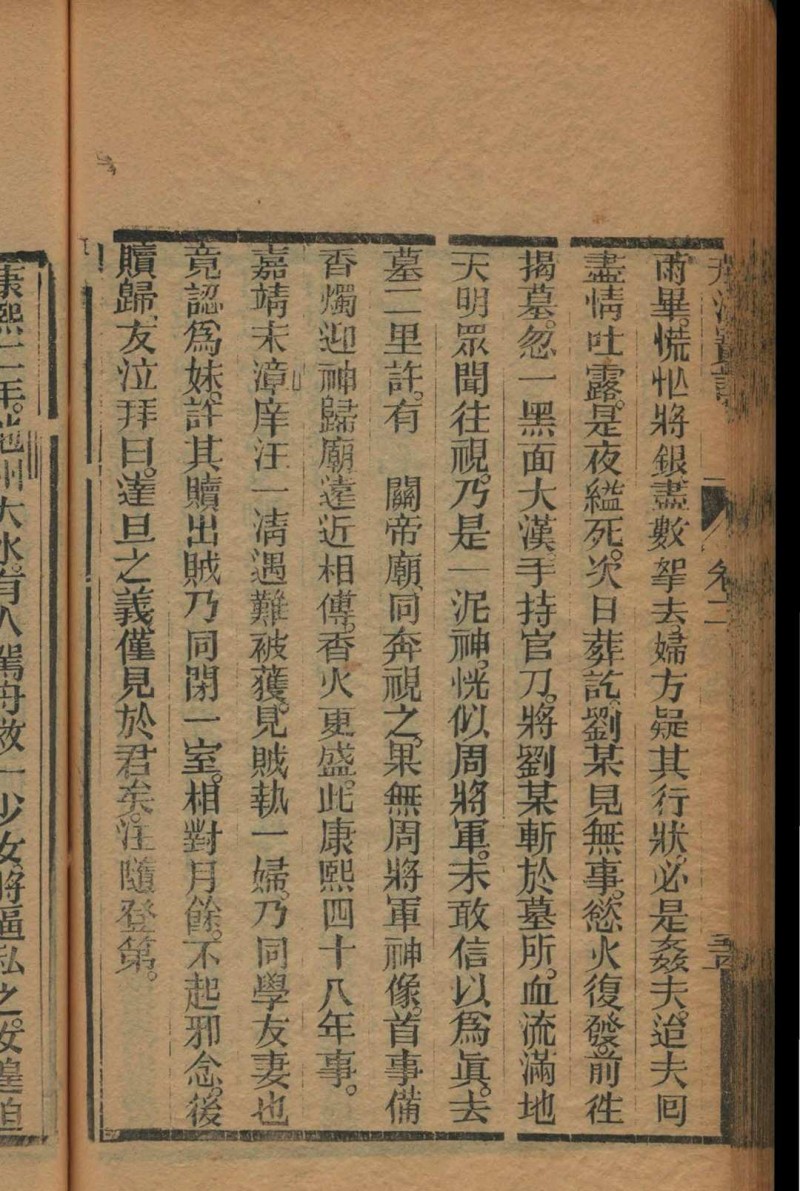 卷二
雨畢。慌忙將銀盡數挈去。婦方疑其行狀。必是姦夫。迨夫囘
盡情吐露。是夜縊死。次日葬訖。劉某見無事。慾火復發。前徃
揭墓。忽一黑面大漢。手持官刀。將劉某斬於墓所。血流滿地
天明眾聞往視。乃是一泥神。恍似周將軍。未敢信以爲眞。去
墓二里許。有 關帝廟。同奔視之。果無周將軍神像。首事備
香燭迎神歸廟。遠近相傳。香火更盛。此康熙四十八年事。
嘉靖末漳庠汪一清遇難被獲。見賊執一婦。乃同學友妻也
竟認爲妹。許其贖出賊乃同閉一室。相對月餘。不起邪念。後
贖歸、友泣拜曰。達旦之義僅見於君矣。汪隨登第。
康熙二年。池州大水。有人駕舟救一少女將逼私之。女惶迫